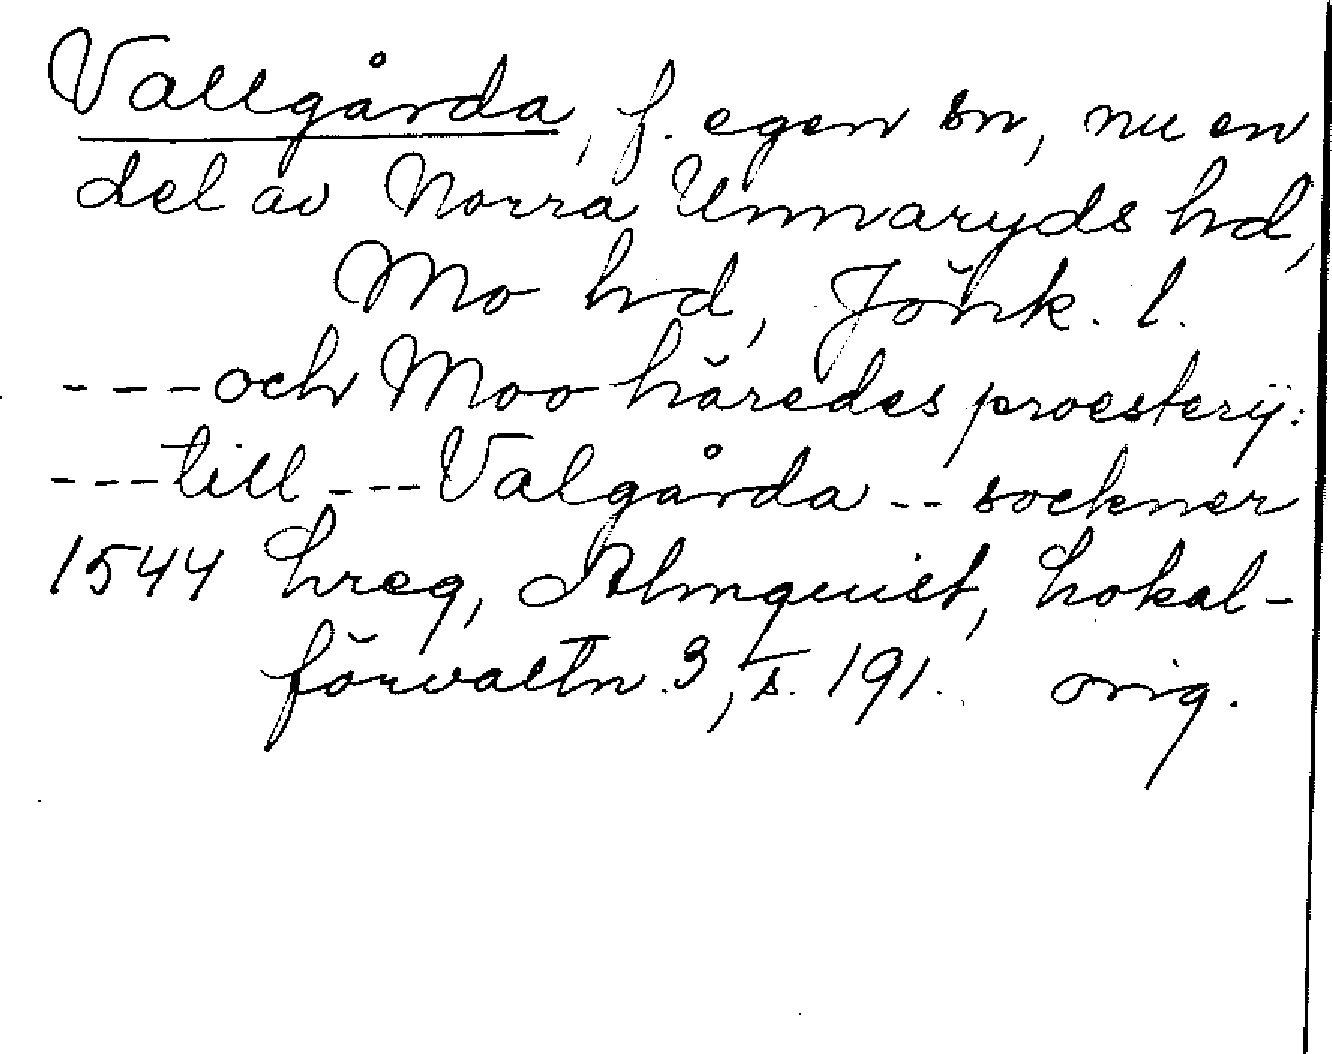 Vallgårda, f. egen sn, nu en
del av Norra Unnaryds hd,
Mo hd, Jönk. l.
---och Moo häredes proesterij:
---till---Valgårda--sockner
1544 Lreg, Almquist, Lokal-
förvaltn. 3, s. 191. orig.